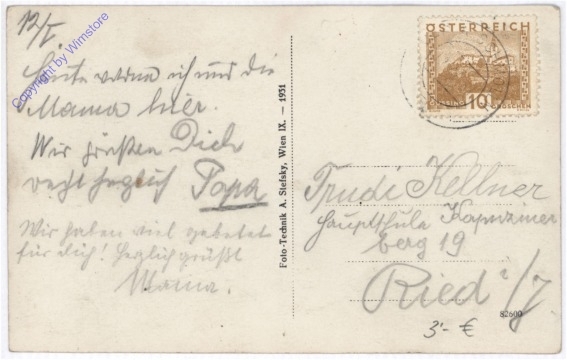 12/I
Copyright by Wimstore
Heute waren ich und die
Mama hier.
Wir grüßen Dich
recht herzlich Papa
Wir haben viel gebetet
für dich! Herzlich grüßt
Mama.
Foto-Technik A. Stefsky, Wien IX. – 1931
ÖSTERREICH
10
GROSCHEN
Trudi Kellner
Hauptschule Kapuziner
berg 19
Ried i/J
82600
3'- €